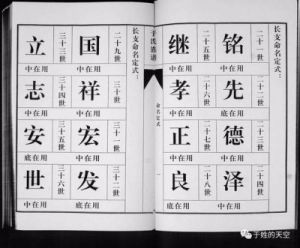 长支命名定式：
二十一世
铭
中在用
先
底在用
二十三世
德
中在用
二十四世
泽
中在用
二十五世
继
中在用
二十六世
孝
中在用
二十七世
正
中在用
二十八世
良
底在用
于氏族谱
命名定式
一
二十九世
国
中在用
祥
中在用
宏
中在用
三十二世
发
底在用
三十三世
立
中在用
三十四世
志
中在用
三十五世
安
底在用
三十六世
世
中在用
长支命名定式：
于姓的天空